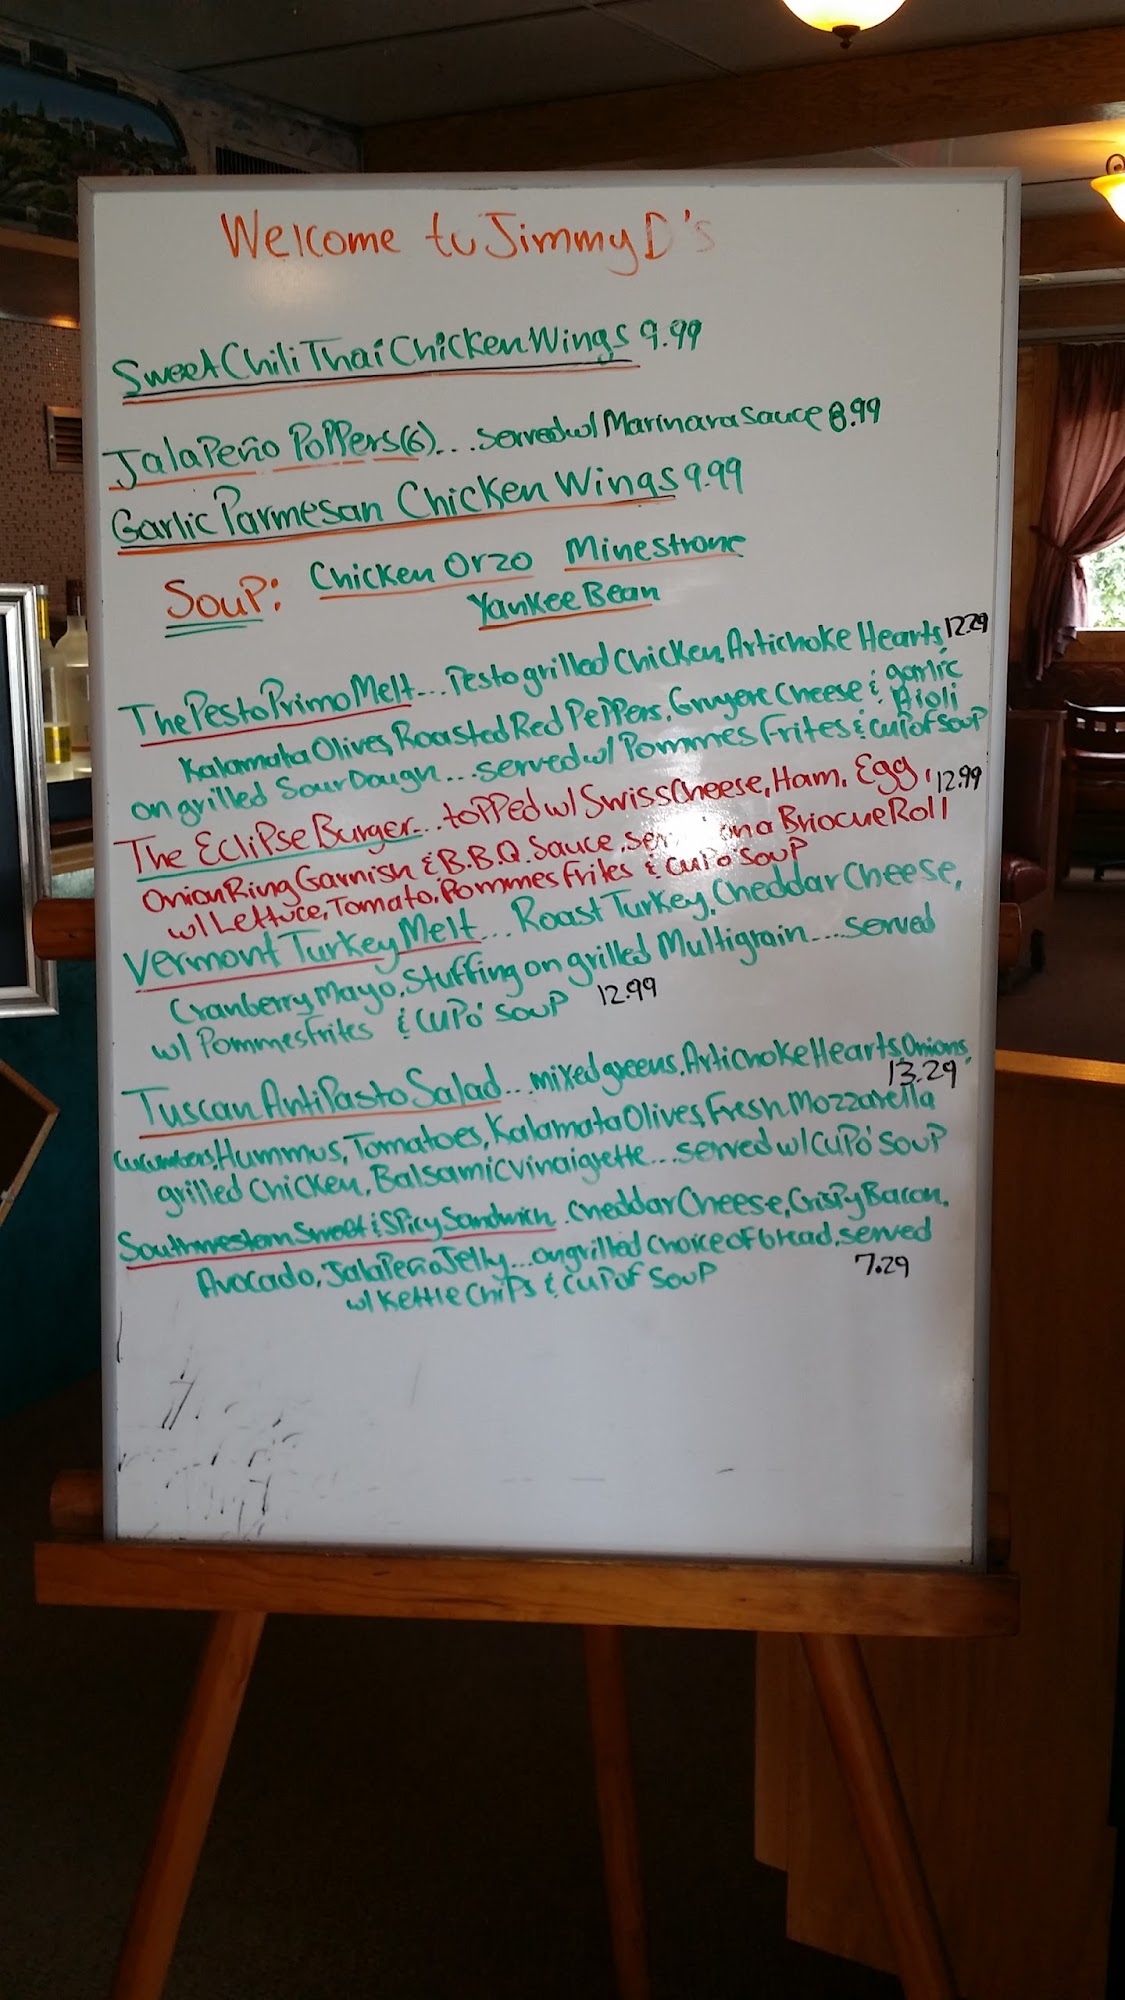 Welcome to Jimmy D's
Sweet Chili Thai Chicken Wings 9.99
Jalapeño Poppers (6)... served w/ Marinara Sauce 8.99
Garlic Parmesan Chicken Wings 9.99
Soup: Chicken Orzo Minestrone
Yankee Bean
The Pesto Primo Melt... Pesto grilled Chicken, Artichoke Hearts, 12.29
Kalamata Olives, Roasted Red Peppers, Gruyere Cheese & garlic Aioli
on grilled Sour Dough... served w/ Pommes Frites & cup of soup
The Eclipse Burger... topped w/ Swiss Cheese, Ham, Egg, 12.99
Onion Ring Garnish & B.B.Q. Sauce, on a Briocue Roll
w/ Lettuce, Tomato, Pommes Frites & cup o' soup
Vermont Turkey Melt... Roast Turkey, Cheddar Cheese,
Cranberry Mayo, Stuffing on grilled Multigrain.... served
w/ Pommes Frites & cup o' soup 12.99
Tuscan AntiPasto Salad... mixed greens, Artichoke Hearts, Onions,
13.29
Cucumbers, Hummus, Tomatoes, Kalamata Olives, Fresh Mozzarella
grilled Chicken, Balsamic Vinaigrette... served w/ cup o' soup
Southwestern Sweet & Spicy Sandwich. Cheddar Cheese, Crispy Bacon,
Avocado, Jalapeño Jelly... on grilled choice of bread, served
w/ Kettle Chips & cup of soup 7.29